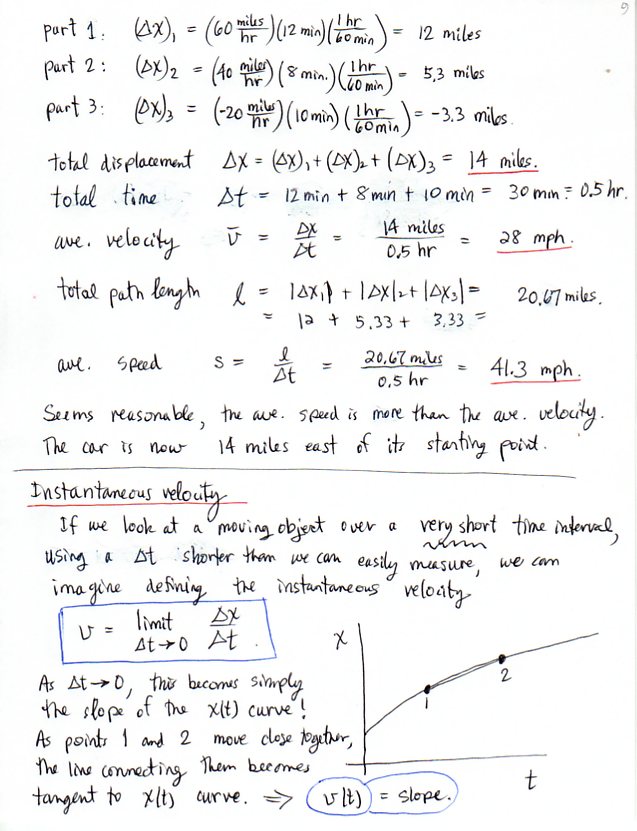 9
part 1: (Δx)₁ = (60 miles/hr)(12 min)(1 hr/60 min) = 12 miles
part 2: (Δx)₂ = (40 miles/hr)(8 min.)(1 hr/60 min) = 5.3 miles
part 3: (Δx)₃ = (-20 miles/hr)(10 min)(1 hr/60 min) = -3.3 miles.
total displacement Δx = (Δx)₁ + (Δx)₂ + (Δx)₃ = 14 miles.
total time Δt = 12 min + 8 min + 10 min = 30 min = 0.5 hr.
ave. velocity v̄ = Δx/Δt = 14 miles/0.5 hr = 28 mph.
total path length l = |Δx₁| + |Δx|₂ + |Δx₃| = 20.67 miles.
= 12 + 5.33 + 3.33 =
ave. speed s = l/Δt = 20.67 miles/0.5 hr = 41.3 mph.
Seems reasonable, the ave. speed is more than the ave. velocity.
The car is now 14 miles east of its starting point.
Instantaneous velocity
If we look at a moving object over a very short time interval,
using a Δt shorter than we can easily measure, we can
imagine defining the instantaneous velocity
v = limit Δt→0 Δx/Δt .
As Δt→0, this becomes simply
the slope of the x(t) curve!
As points 1 and 2 move close together,
the line connecting them becomes
tangent to x(t) curve. ⇒ v(t) = slope.
x
1
2
t